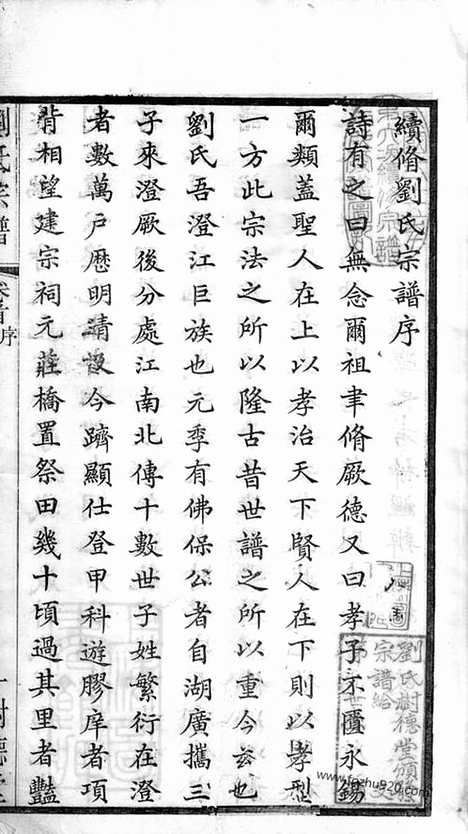 續脩劉氏宗譜序
詩有之曰無念爾祖聿脩厥德又曰孝子不匱永錫
爾類蓋聖人在上以孝治天下賢人在下則以孝型
一方此宗法之所以隆古昔世譜之所以重今玆也
劉氏吾澄江巨族也元季有佛保公者自湖廣攜三
子來澄厥後分處江南北傳十數世子姓繁衍在澄
者數萬戶歷明清迄今躋顯仕登甲科遊膠庠者項
背相望建宗祠元莊橋置祭田幾十頃過其里者豔
劉氏宗譜
卷首序
一樹德堂
劉氏樹德堂頒發
宗譜給
www.jiapu920.com